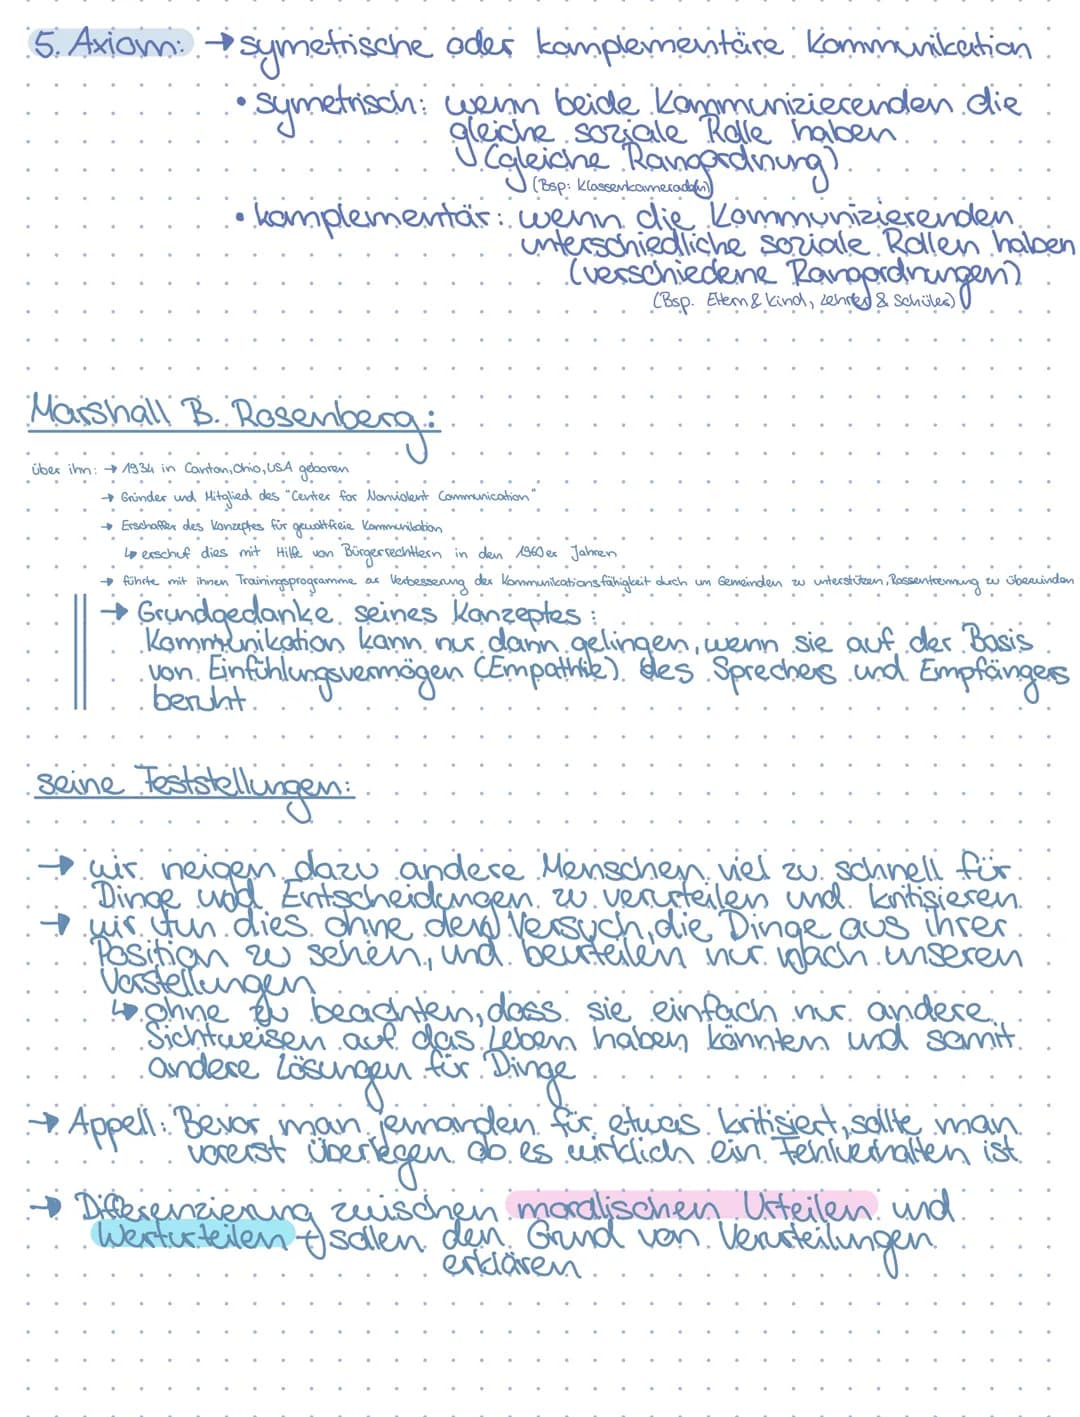 5. Axiom: → symetrische oder komplementäre Kommunikation
• symetrisch: wenn beide Kommunizierenden die
gleiche soziale Rolle haben
(gleiche Rangordnung)
(Bsp: Klassenkameraden)
• komplementär: wenn die Kommunizierenden
unterschiedliche soziale Rollen haben
(verschiedene Rangordnungen)
(Bsp. Eltern & Kind, Lehrer & Schüler)
Marshall B. Rosenberg:
über ihn: → 1934 in Canton, Ohio, USA geboren
→ Gründer und Mitglied des "Center for Nonviolent Communication"
→ Erschaffer des Konzeptes für gewaltfreie Kommunikation
↳ erschuf dies mit Hilfe von Bürgerrechtlern in den 1960er Jahren
→ führte mit ihnen Trainingsprogramme zur Verbesserung der Kommunikationsfähigkeit durch um Gemeinden zu unterstützen, Rassentrennung zu überwinden
→ Grundgedanke seines Konzeptes:
Kommunikation kann nur dann gelingen, wenn sie auf der Basis
von Einfühlungsvermögen (Empathie) des Sprechers und Empfängers
beruht
seine Feststellungen:
→ wir neigen dazu andere Menschen viel zu schnell für
Dinge und Entscheidungen zu verurteilen und kritisieren
→ wir tun dies ohne den Versuch, die Dinge aus ihrer
Position zu sehen, und beurteilen nur nach unseren
Vorstellungen
↳ ohne zu beachten, dass sie einfach nur andere
Sichtweisen auf das Leben haben könnten und somit
andere Lösungen für Dinge
→ Appell: Bevor man jemanden für etwas kritisiert, sollte man
vorerst überlegen ob es wirklich ein Fehlverhalten ist
→ Differenzierung zwischen moralischen Urteilen und
Werturteilen → sollen den Grund von Verurteilungen
erklären